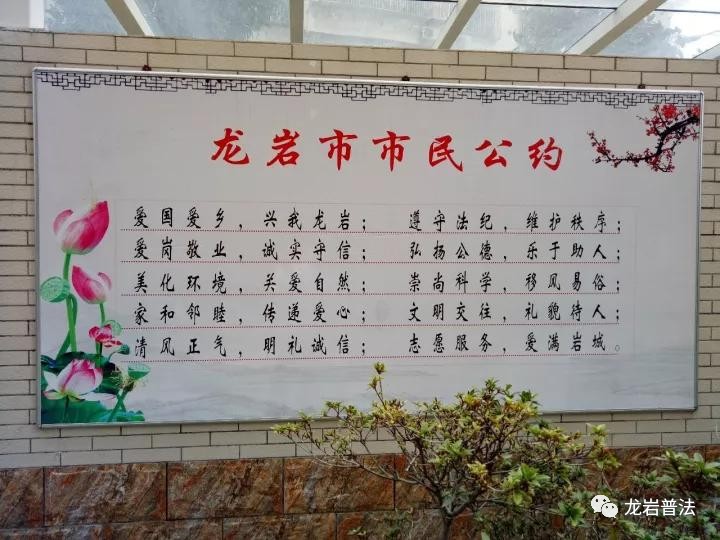 龙岩市市民公约
爱国爱乡，兴我龙岩； 遵守法纪，维护秩序；
爱岗敬业，诚实守信； 弘扬公德，乐于助人；
美化环境，关爱自然； 崇尚科学，移风易俗；
家和邻睦，传递爱心； 文明交往，礼貌待人；
清风正气，明礼诚信； 志愿服务，爱满岩城。
龙岩普法